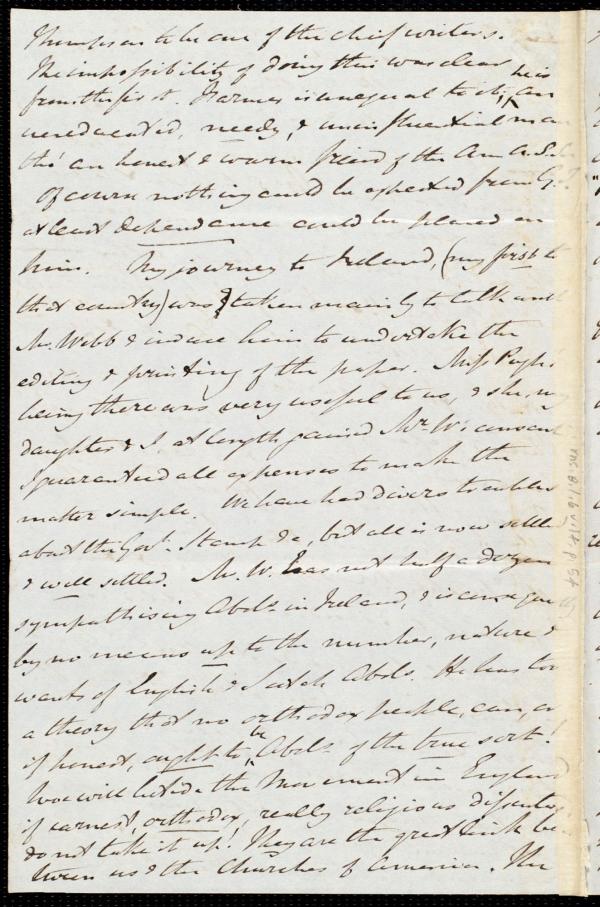 Thompson to be one of the chief writers.
The impossibility of doing this was clear
from the first. Farmer is unequal to it, he is an
uneducated, needy, & uninfluential man
tho' an honest & warm friend of the Am. A.S.
Of course nothing could be expected from G.T.
at least dependance could be placed on
him. My journey to Ireland, (my first to
that country) was taken mainly to talk with
Mr. Webb & induce him to undertake the
editing & printing of the paper. Miss Pugh's
being there was very useful to us, & she, my
daughter & I, at length gained Mr. W's consent
I guaranteed all expenses to make the
matter simple. We have had divers troubles
about the Govt. Stamp &c, but all is now settled
& well settled. Mr. W. has not half a dozen
sympathising Abols. in Ireland, & is consequently
by no means up to the number, nature &
wants of English & Scotch Abols. He has too
a theory that no orthodox people, can, or
if honest, ought to be Abols. of the true sort!
Woe will betide the Movement in England
if earnest, orthodox, really religious dissenters
do not take it up! They are the great link be-
tween us & the Churches of America. The
Ms. B.1.6 v.14 p.54